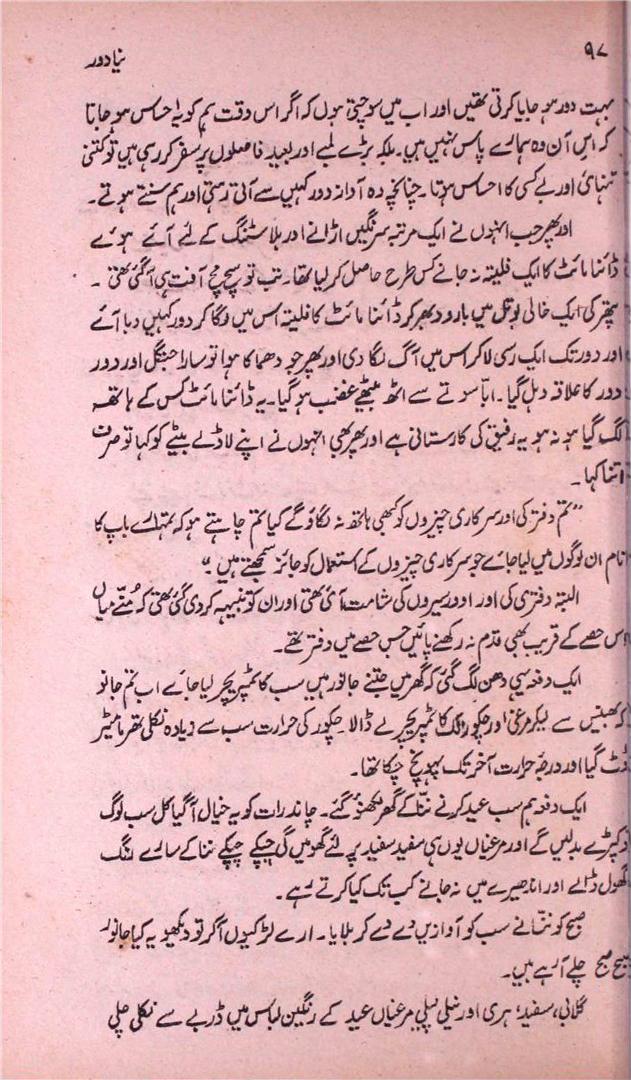 ۹۷
نیا دور
بہت دور ہو جایا کرتی تھیں اور اب میں سوچتی ہوں کہ اگر اس وقت ہم کو یہ احساس ہو جاتا
کہ اس آن وہ ہمارے پاس نہیں ہیں۔ بلکہ بڑے لمبے اور بعید فاصلوں پر سفر کر رہی ہیں تو کتنی
تنہائی اور بے کسی کا احساس ہوتا۔ چنانچہ وہ آواز دور کہیں سے آتی رہتی اور ہم سنتے ہوتے۔
اور پھر جب انہوں نے ایک مرتبہ سرنگیں اڑانے اور بلاسٹنگ کے لئے آئے ہوئے
ڈائنا مائٹ کا ایک فلیتہ نہ جانے کس طرح حاصل کر لیا تھا۔ تب تو سچ مچ آفت ہی آگئی تھی۔
پتھر کی ایک خالی بوتل میں بارود بھر کر ڈائنا مائٹ کا فلیتہ اس میں لگا کر دور کہیں دبا آئے
اور دور تک ایک رسی لا کر اس میں آگ لگا دی اور پھر جو دھماکا ہوا تو سارا جنگل اور دور
دور کا علاقہ دہل گیا۔ ابا سوتے سے اٹھ بیٹھے غضب ہو گیا۔ یہ ڈائنا مائٹ کس کے ہاتھ
لگ گیا ہو نہ ہو یہ رفیق کی کارستانی ہے اور پھر بھی انہوں نے اپنے لاڈلے بیٹے کو کہا تو صرف
اتنا کہا۔
”تم دفتر کی اور سرکاری چیزوں کو کبھی ہاتھ نہ لگاؤ گے کیا تم چاہتے ہو کہ تمہارے باپ کا
نام ان لوگوں میں لیا جائے جو سرکاری چیزوں کے استعمال کو جائز سمجھتے ہیں۔“
البتہ دفتری کی اور اوورسیروں کی شامت آئی تھی اور ان کو تنبیہہ کر دی گئی تھی کہ مُنّے میاں
اس حصے کے قریب بھی قدم نہ رکھنے پائیں جس حصے میں دفتر تھے۔
ایک دفعہ یہی دھن لگ گئی کہ گھر میں جتنے جانور ہیں سب کا ٹمپریچر لیا جائے اب تم جانو
کہ بھینس سے لیکر مرغی اور چکور تک کا ٹمپریچر لے ڈالا۔ چکور کی حرارت سب سے زیادہ نکلی تھرمامیٹر
ٹوٹ گیا اور درجہ حرارت آخر تک پہونچ چکا تھا۔
ایک دفعہ ہم سب عید کرنے ننّا کے گھر لکھنؤ گئے۔ چاند رات کو یہ خیال آگیا کل سب لوگ
تو کپڑے بدلیں گے اور مرغیاں یوں ہی سفید سفید پر لئے گھومیں گی چپکے چپکے ننا کے سارے رنگ
گھول ڈالے اور اندھیرے میں نہ جانے کب تک کیا کرتے رہے۔
صبح کو ننّا نے سب کو آوازیں دے دے کر بلایا۔ ارے لڑکیوں آکر تو دیکھو یہ کیا جانور
صبح صبح چلے آرہے ہیں۔
گلابی، سفید، ہری اور نیلی پیلی مرغیاں عید کے رنگین لباس میں ڈربے سے نکلی چلی